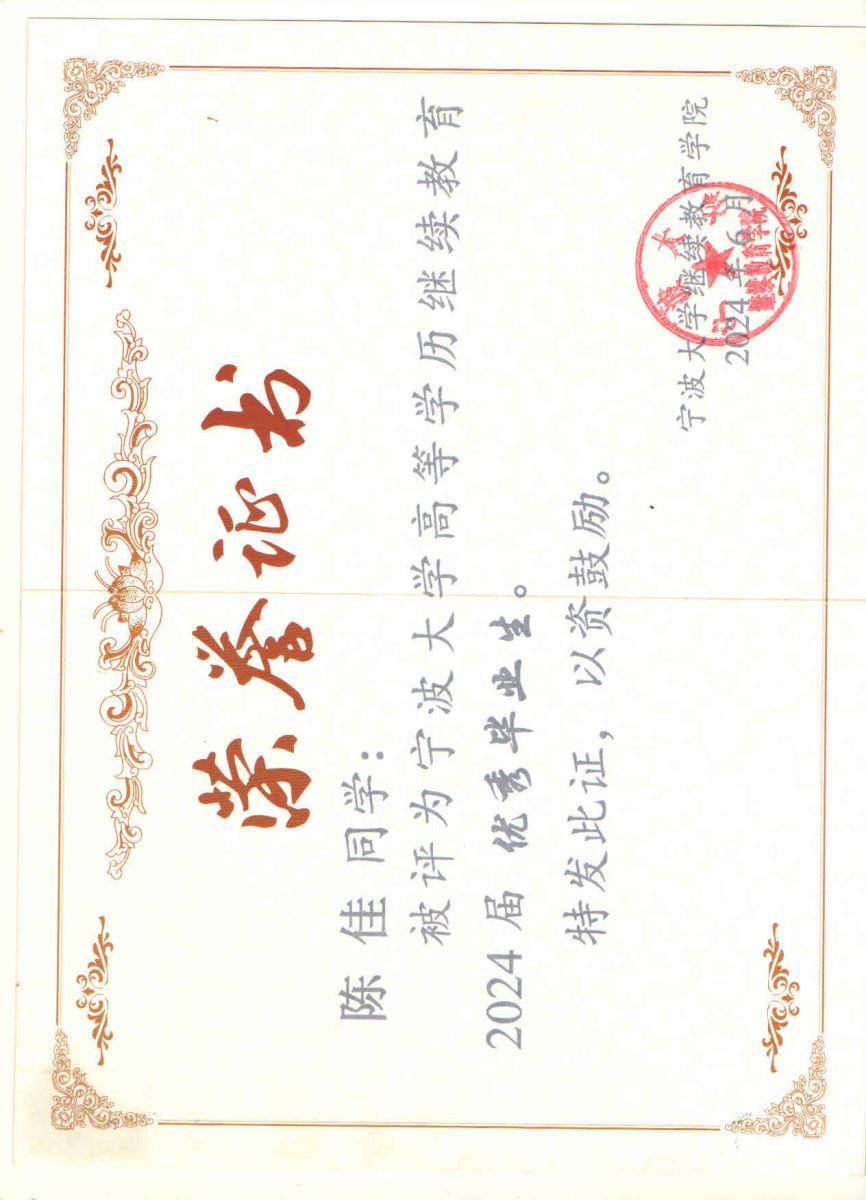 荣誉证书
陈佳同学：
被评为宁波大学高等学历继续教育
2024届 优秀毕业生。
特发此证，以资鼓励。
宁波大学继续教育学院
2024年6月
宁波大学
继续教育学院